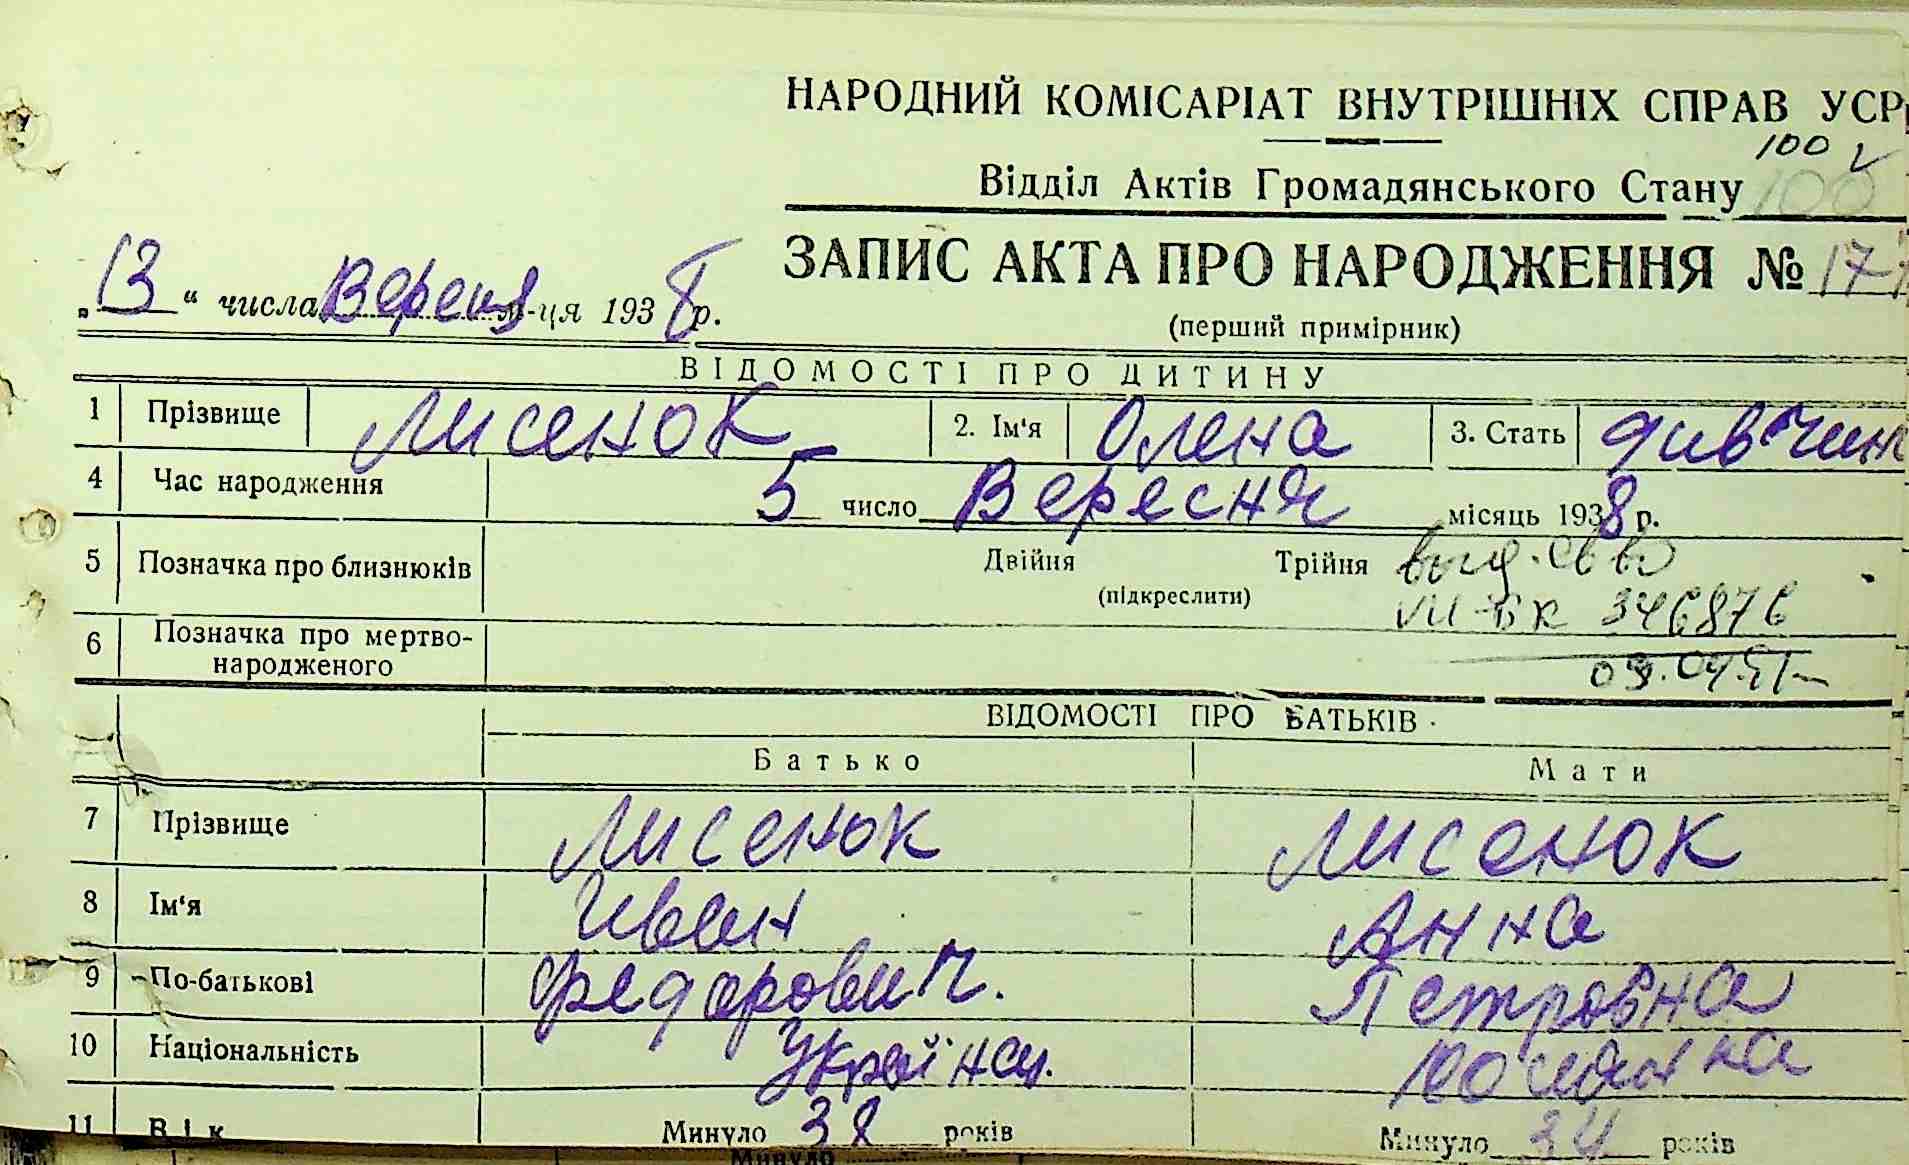 НАРОДНИЙ КОМІСАРІАТ ВНУТРІШНІХ СПРАВ УСР
100 V
Відділ Актів Громадянського Стану 100
ЗАПИС АКТА ПРО НАРОДЖЕННЯ № 17
„13“ числа Вересня м-ця 1938 р.
(перший примірник)
ВІДОМОСТІ ПРО ДИТИНУ
1 Прізвище Лисенок 2. Ім'я Олена 3. Стать дивчин
4 Час народження 5 число Вересня місяць 1938 р.
5 Позначка про близнюків Двійня Трійня выд. св во
(підкреслити) VII-БК 346876
6 Позначка про мертво-
народженого 09.04.51
ВІДОМОСТІ ПРО БАТЬКІВ
Батько Мати
7 Прізвище Лисенок Лисенок
8 Ім'я Иван Анна
9 По-батькові Федорович. Петровна
10 Національність Україн
11 Вік Минуло 38 років Минуло 34 років
Минуло